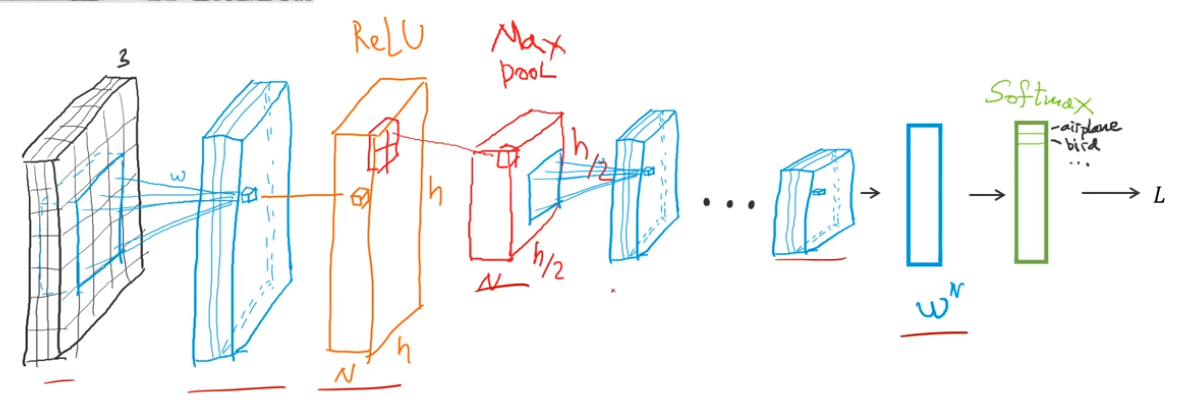 3
w
ReLU
h
h
N
Max
pool
h/2
h/2
N
w
...
w^N
Softmax
airplane
bird
...
L